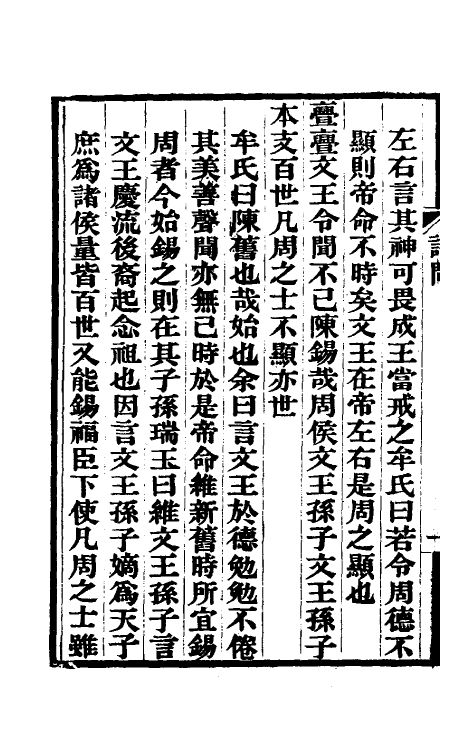 左右言其神可畏成王當戒之牟氏曰若令周德不
顯則帝命不時矣文王在帝左右是周之顯也
亹亹文王令聞不已陳錫哉周侯文王孫子文王孫子
本支百世凡周之士不顯亦世
牟氏曰陳舊也哉始也余曰言文王於德勉勉不倦
其美善聲聞亦無已時於是帝命維新舊時所宜錫
周者今始錫之則在其子孫瑞玉曰維文王孫子言
文王慶流後裔起念祖也因言文王孫子嫡爲天子
庶爲諸侯量皆百世又能錫福臣下使凡周之士雖